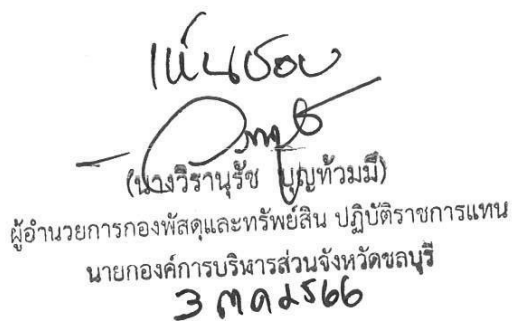 เห็นชอบ
(นางวิรานุรัช บุญท้วมมี)
ผู้อำนวยการกองพัสดุและทรัพย์สิน ปฏิบัติราชการแทน
นายกองค์การบริหารส่วนจังหวัดชลบุรี
3 ตค 2566